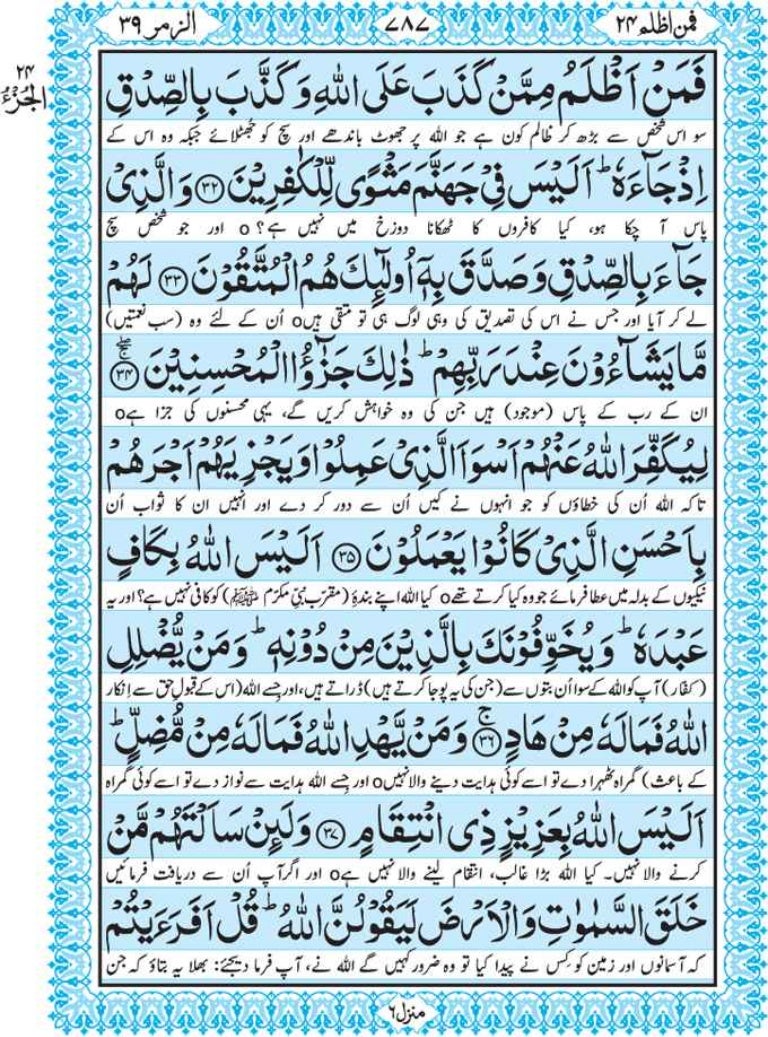 فمن اظلم ٢٤
٧٨٧
الزمر ٣٩
٢٤
الجُزْءُ
فَمَنْ اَظْلَمُ مِمَّنْ كَذَبَ عَلَى اللّٰهِ وَ كَذَّبَ بِالصِّدْقِ
سو اس شخص سے بڑھ کر ظالم کون ہے جو اللہ پر جھوٹ باندھے اور سچ کو جھٹلائے جبکہ وہ اس کے
اِذْ جَآءَهٗ ؕ اَلَيْسَ فِيْ جَهَنَّمَ مَثْوًى لِّلْكٰفِرِيْنَ ﴿٣٢﴾ وَ الَّذِيْ
پاس آ چکا ہو، کیا کافروں کا ٹھکانا دوزخ میں نہیں ہے؟ o اور جو شخص سچ
جَآءَ بِالصِّدْقِ وَ صَدَّقَ بِهٖۤ اُولٰٓئِكَ هُمُ الْمُتَّقُوْنَ ﴿٣٣﴾ لَهُمْ
لے کر آیا اور جس نے اس کی تصدیق کی وہی لوگ ہی تو متقی ہیں o اُن کے لئے وہ (سب نعمتیں)
مَّا يَشَآءُوْنَ عِنْدَ رَبِّهِمْ ؕ ذٰلِكَ جَزٰٓؤُا الْمُحْسِنِيْنَ ﴿٣٤﴾
ان کے رب کے پاس (موجود) ہیں جن کی وہ خواہش کریں گے، یہی محسنوں کی جزا ہے o
لِيُكَفِّرَ اللّٰهُ عَنْهُمْ اَسْوَاَ الَّذِيْ عَمِلُوْا وَ يَجْزِيَهُمْ اَجْرَهُمْ
تاکہ اللہ اُن کی خطاؤں کو جو انہوں نے کیں اُن سے دور کر دے اور انہیں ان کا ثواب اُن
بِاَحْسَنِ الَّذِيْ كَانُوْا يَعْمَلُوْنَ ﴿٣٥﴾ اَلَيْسَ اللّٰهُ بِكَافٍ
نیکیوں کے بدلہ میں عطا فرمائے جو وہ کیا کرتے تھے o کیا اللہ اپنے بندۂ (مقرّب نبیِّ مکرّم ﷺ) کو کافی نہیں ہے؟ اور یہ
عَبْدَهٗ ؕ وَ يُخَوِّفُوْنَكَ بِالَّذِيْنَ مِنْ دُوْنِهٖ ؕ وَ مَنْ يُّضْلِلِ
(کفّار) آپ کو اللہ کے سوا اُن بتوں سے (جن کی یہ پوجا کرتے ہیں) ڈراتے ہیں، اور جسے اللہ (اس کے قبولِ حق سے اِنکار
اللّٰهُ فَمَا لَهٗ مِنْ هَادٍ ۚ ﴿٣٦﴾ وَ مَنْ يَّهْدِ اللّٰهُ فَمَا لَهٗ مِنْ مُّضِلٍّ ؕ
کے باعث) گمراہ ٹھہرا دے تو اسے کوئی ہدایت دینے والا نہیں o اور جسے اللہ ہدایت سے نواز دے تو اسے کوئی گمراہ
اَلَيْسَ اللّٰهُ بِعَزِيْزٍ ذِي انْتِقَامٍ ﴿٣٧﴾ وَ لَئِنْ سَاَلْتَهُمْ مَّنْ
کرنے والا نہیں۔ کیا اللہ بڑا غالب، انتقام لینے والا نہیں ہے o اور اگر آپ اُن سے دریافت فرمائیں
خَلَقَ السَّمٰوٰتِ وَ الْاَرْضَ لَيَقُوْلُنَّ اللّٰهُ ؕ قُلْ اَفَرَءَيْتُمْ
کہ آسمانوں اور زمین کو کِس نے پیدا کیا تو وہ ضرور کہیں گے اللہ نے، آپ فرما دیجئے: بھلا یہ بتاؤ کہ جن
منزل ٦